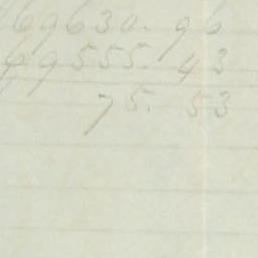 69630. 96
69555. 43
75. 53